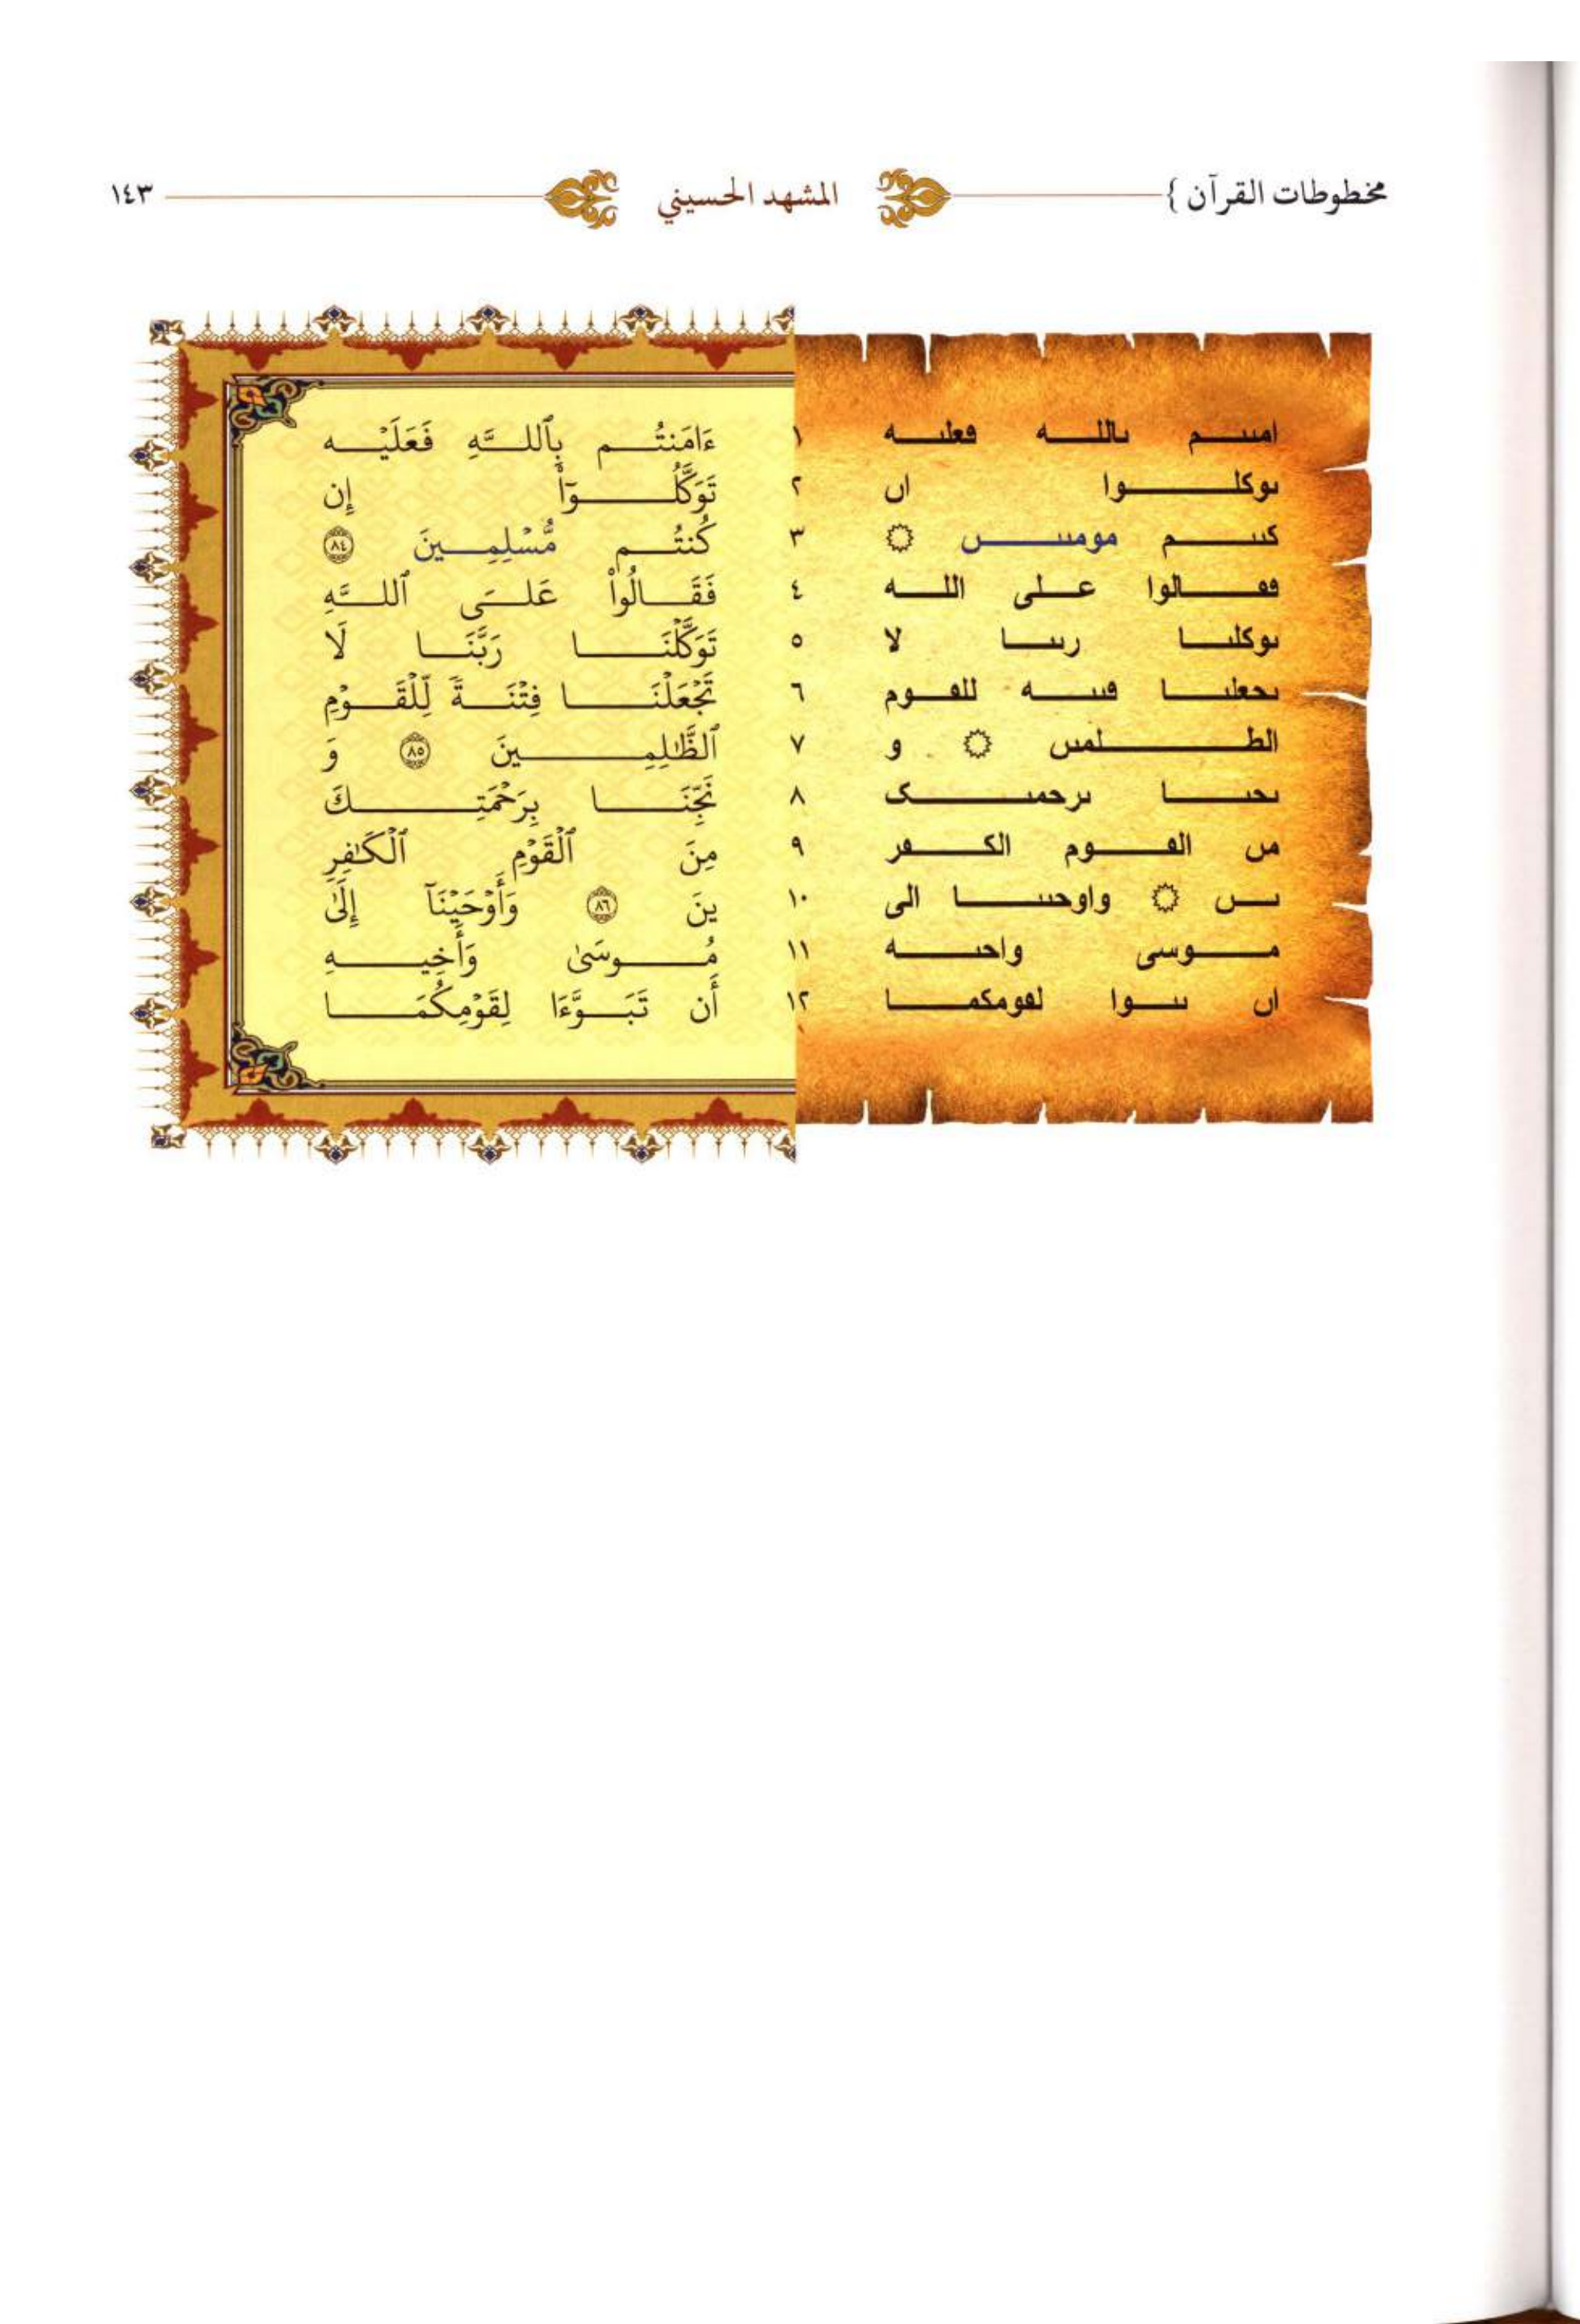 مخطوطات القرآن } المشهد الحسيني ١٤٣
امىىىم ىاللـه ڡعلىه ١ ءَامَنتُم بِٱللَّهِ فَعَلَيْه
ىوكلوا اں ٢ تَوَكَّلُوٓاْ إِن
كىىم مومىىں ۝ ٣ كُنتُم مُّسْلِمِينَ ٨٤
ڡٯالوا على اللـه ٤ فَقَالُواْ عَلَى ٱللَّهِ
ىوكلىا رىىا لا ٥ تَوَكَّلْنَا رَبَّنَا لَا
ىحعلىا ڡىىه للٯوم ٦ تَجْعَلْنَا فِتْنَةً لِّلْقَوْمِ
الطلمىں ۝ و ٧ ٱلظَّٰلِمِينَ ٨٥ وَ
ىحىا ىرحمىک ٨ نَجِّنَا بِرَحْمَتِكَ
مں الٯوم الكڡر ٩ مِنَ ٱلْقَوْمِ ٱلْكَٰفِرِ
ىں ۝ واوحىىا الى ١٠ ينَ ٨٦ وَأَوْحَيْنَآ إِلَىٰ
موسى واحىه ١١ مُوسَىٰ وَأَخِيهِ
اں ىىوا لٯومكما ١٢ أَن تَبَوَّءَا لِقَوْمِكُمَا